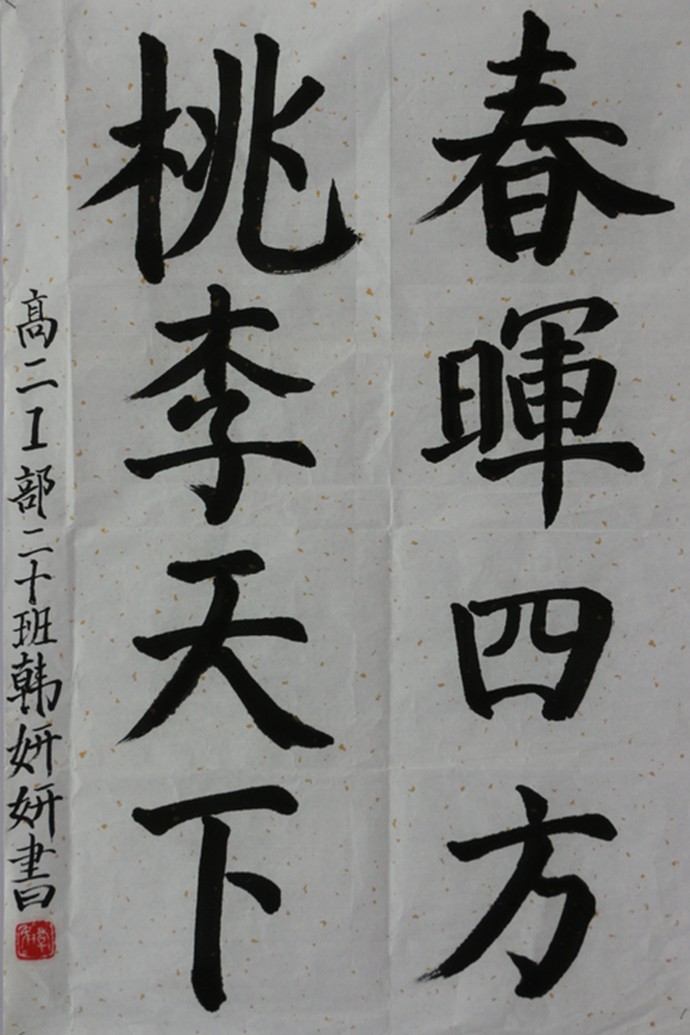 春暉四方
桃李天下
高二工部二十班韩妍妍書